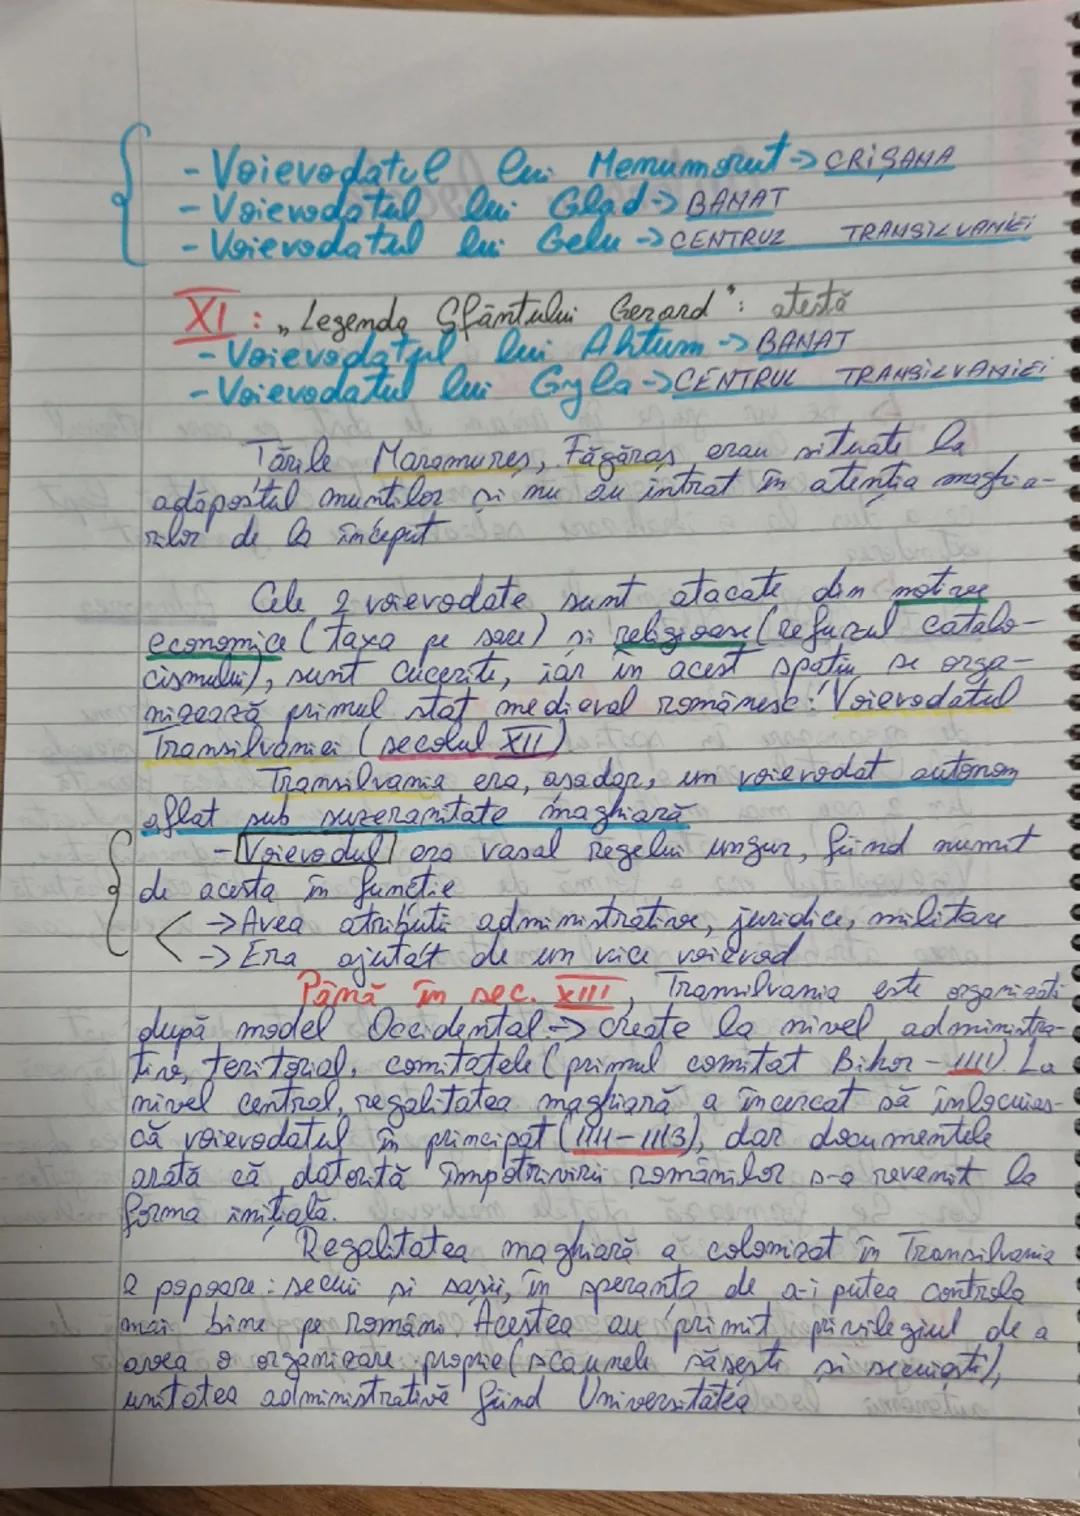 - Voievodatul lui Menumorut -> CRIȘANA
- Voievodatul lui Glad -> BANAT
- Voievodatul lui Gelu -> CENTRUL TRANSILVANIEI
XI : „Legenda Sfântului Gerard": atestă
- Voievodatul lui Ahtum -> BANAT
- Voievodatul lui Gyla -> CENTRUL TRANSILVANIEI
Țările Maramureș, Făgăraș erau situate la
adăpostul munților și nu au intrat în atenția maghia-
rilor de la început
Cele 2 voievodate sunt atacate din motive
economice (taxa pe sare) și religioase (refuzul catolo-
cismului), sunt cucerite, iar în acest spațiu se orga-
nizează primul stat medieval românesc: Voievodatul
Transilvaniei (secolul XII)
Transilvania era, așadar, un voievodat autonom
aflat sub suzeranitate maghiară
- Voievodul era vasal regelui ungur, fiind numit
de acesta în funcție
-> Avea atribuții administrative, juridice, militare
-> Era ajutat de un vice voievod
Până în sec. XIII, Transilvania este organizată
după model Occidental -> create la nivel administra-
tiv, teritorial, comitatele (primul comitat Bihor - 1111). La
nivel central, regalitatea maghiară a încercat să înlocuias-
că voievodatul în principat (1111-1113), dar documentele
arată că datorită împotrivirii românilor s-a revenit la
forma inițială.
Regalitatea maghiară a colonizat în Transilvania
2 popoare: secui și sași, în speranța de a-i putea controla
mai bine pe români. Aceștea au primit privilegiul de a
avea o organizare proprie (scaunele săsești și secuiești),
unitatea administrativă fiind Universitatea